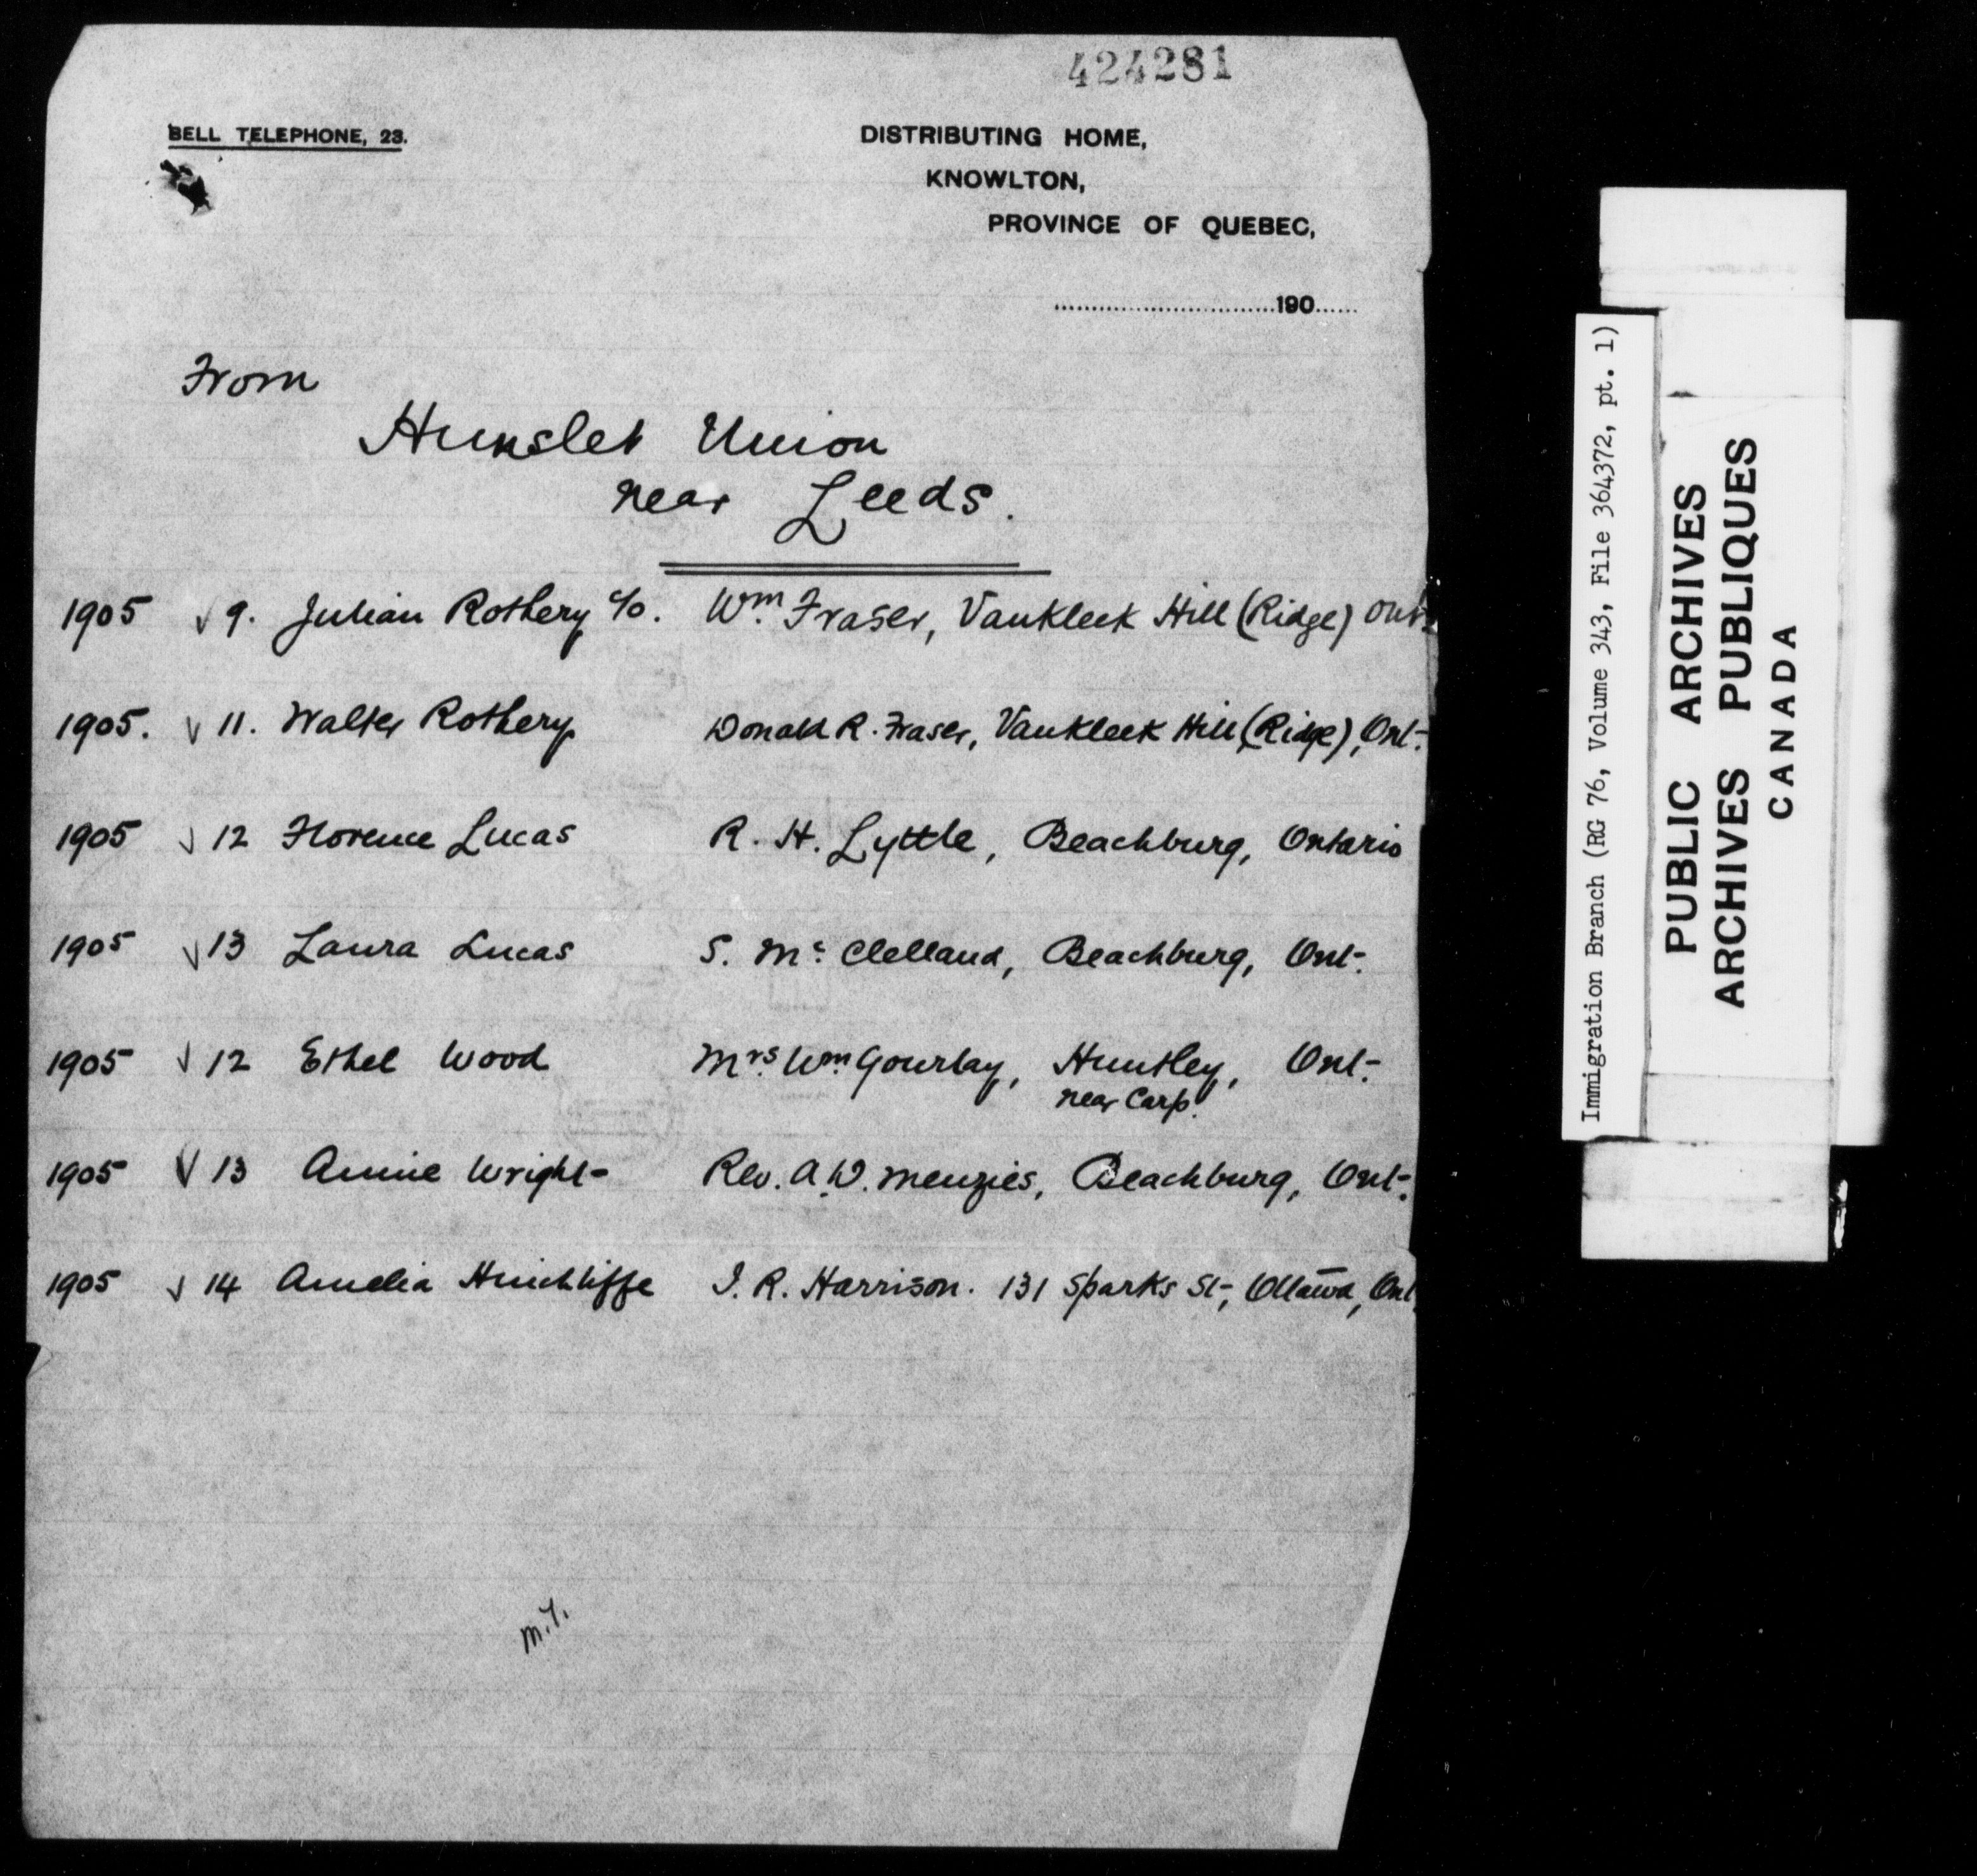 424281
BELL TELEPHONE, 23.
DISTRIBUTING HOME,
KNOWLTON,
PROVINCE OF QUEBEC,
..............................190......
From
Hunslet Union
near Leeds.
1905 √ 9. Julian Rothery c/o. Wm. Fraser, Vankleek Hill (Ridge) Ont.
1905. √ 11. Walter Rothery Donald R. Fraser, Vankleek Hill (Ridge), Ont.
1905 √ 12 Florence Lucas R. H. Lyttle, Beachburg, Ontario
1905 √ 13 Laura Lucas S. Mc Clelland, Beachburg, Ont.
1905 √ 12 Ethel Wood Mrs. Wm. Gourlay, Huntley, Ont.
near Carp.
1905 √ 13 Annie Wright Rev. A. D. Menzies, Beachburg, Ont.
1905 √ 14 Amelia Hinchliffe I. R. Harrison. 131 Sparks St, Ottawa, Ont
Immigration Branch (RG 76, Volume 343, File 364372, pt. 1)
PUBLIC ARCHIVES
ARCHIVES PUBLIQUES
CANADA